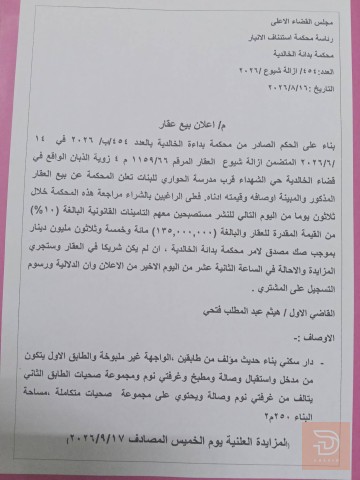 مجلس القضاء الاعلى
رئاسة محكمة استئناف الانبار
محكمة بدائة الخالدية
العدد:/٤٥٤/ ازالة شيوع /٢٠٢٦
التاريخ :٢٠٢٦/٨/١٦
م/ اعلان بيع عقار
بناء على الحكم الصادر من محكمة بداءة الخالدية بالعدد ٤٥٤/ب/ ٢٠٢٦ في ١٤
/٢٠٢٦/٦ المتضمن ازالة شيوع العقار المرقم ١١٥٩/٦٦ م ٤ زوية الذبان الواقع في
قضاء الخالدية حي الشهداء قرب مدرسة الحواري للبنات تعلن المحكمة عن بيع العقار
المذكور والمبينة اوصافه وقيمته ادناه. فعلى الراغبين بالشراء مراجعة هذه المحكمة خلال
ثلاثون يوما من اليوم التالي للنشر مستصحبين معهم التامينات القانونية البالغة (١٠%)
من القيمة المقدرة للعقار والبالغة (١٣٥,٠٠٠,٠٠٠) مائة وخمسة وثلاثون مليون دينار
بموجب صك مصدق لامر محكمة بدائة الخالدية ، ان لم يكن شريكا في العقار وستجري
المزايدة والاحالة في الساعة الثانية عشر من اليوم الاخير من الاعلان وان الدلالية ورسوم
التسجيل على المشتري .
القاضي الاول / هيثم عبد المطلب فتحي
الاوصاف :-
- دار سكني بناء حديث مؤلف من طابقين ،الواجهة غير ملبوخة والطابق الاول يتكون
من مدخل واستقبال وصالة ومطبخ وغرفتي نوم ومجموعة صحيات الطابق الثاني
يتالف من غرفتي نوم وصالة ويحتوي على مجموعة صحيات متكاملة ،مساحة
البناء ٢٥٠م٢
المزايدة العلنية يوم الخميس المصادف ٢٠٢٦/٩/١٧